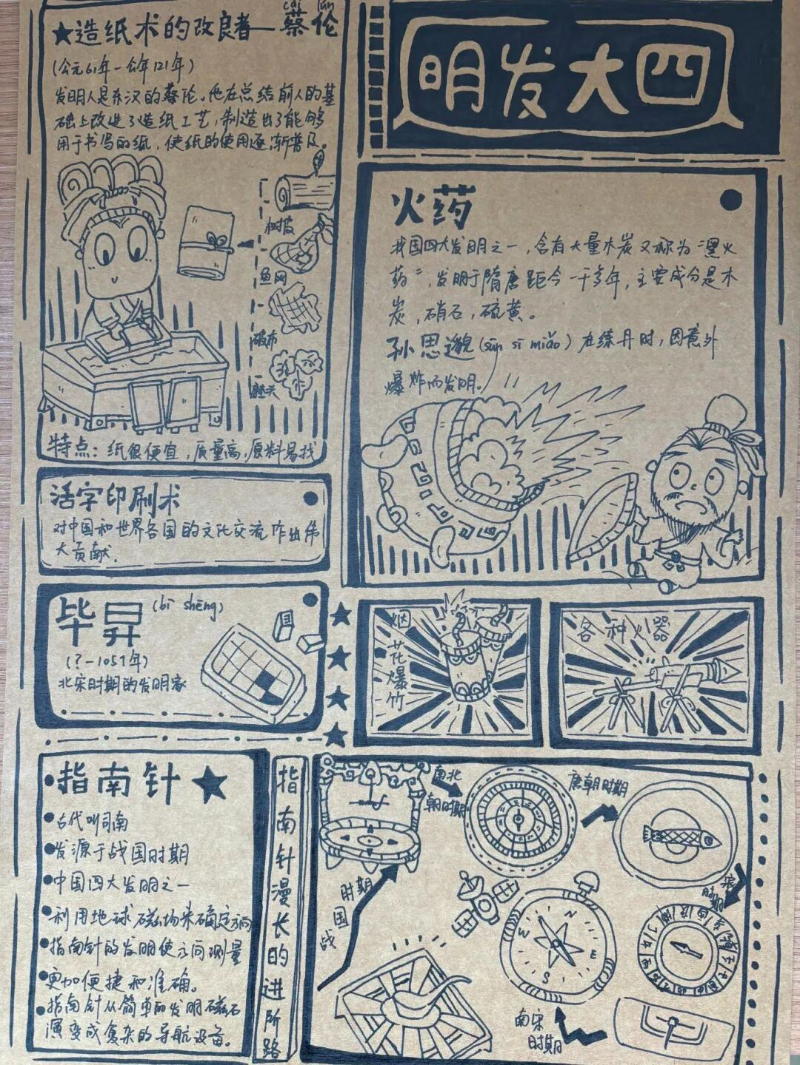 四大发明
cài lún
★造纸术的改良者—蔡伦
(公元61年-公年121年)
发明人是东汉的蔡伦。他在总结前人的基
础上改进了造纸工艺,制造出了能够
用于书写的纸,使纸的使用逐渐普及。
树皮
鱼网
破布
特点:纸很便宜,质量高,原料易找
活字印刷术
对中国和世界各国的文化交流作出伟
大贡献.
毕昇(bì shēng)
(?-1051年)
北宋时期的发明家
火药
我国四大发明之一,含有大量木炭又称为“黑火
药”,发明于隋唐距今一千多年,主要成分是木
炭,硝石,硫黄。
孙思邈(sūn sī miǎo)在练丹时,因意外
爆炸而发明。
烟花爆竹
各种火器
指南针★
古代叫司南
发源于战国时期
中国四大发明之一
利用地球磁场来确定方向
指南针的发明使方向测量
更加便捷和准确。
指南针从简单的发明磁石
演变成复杂的导航设备。
指南针漫长的进阶路
战国时期
南北
朝时期
唐朝时期
南宋
时期
N
E
S
W